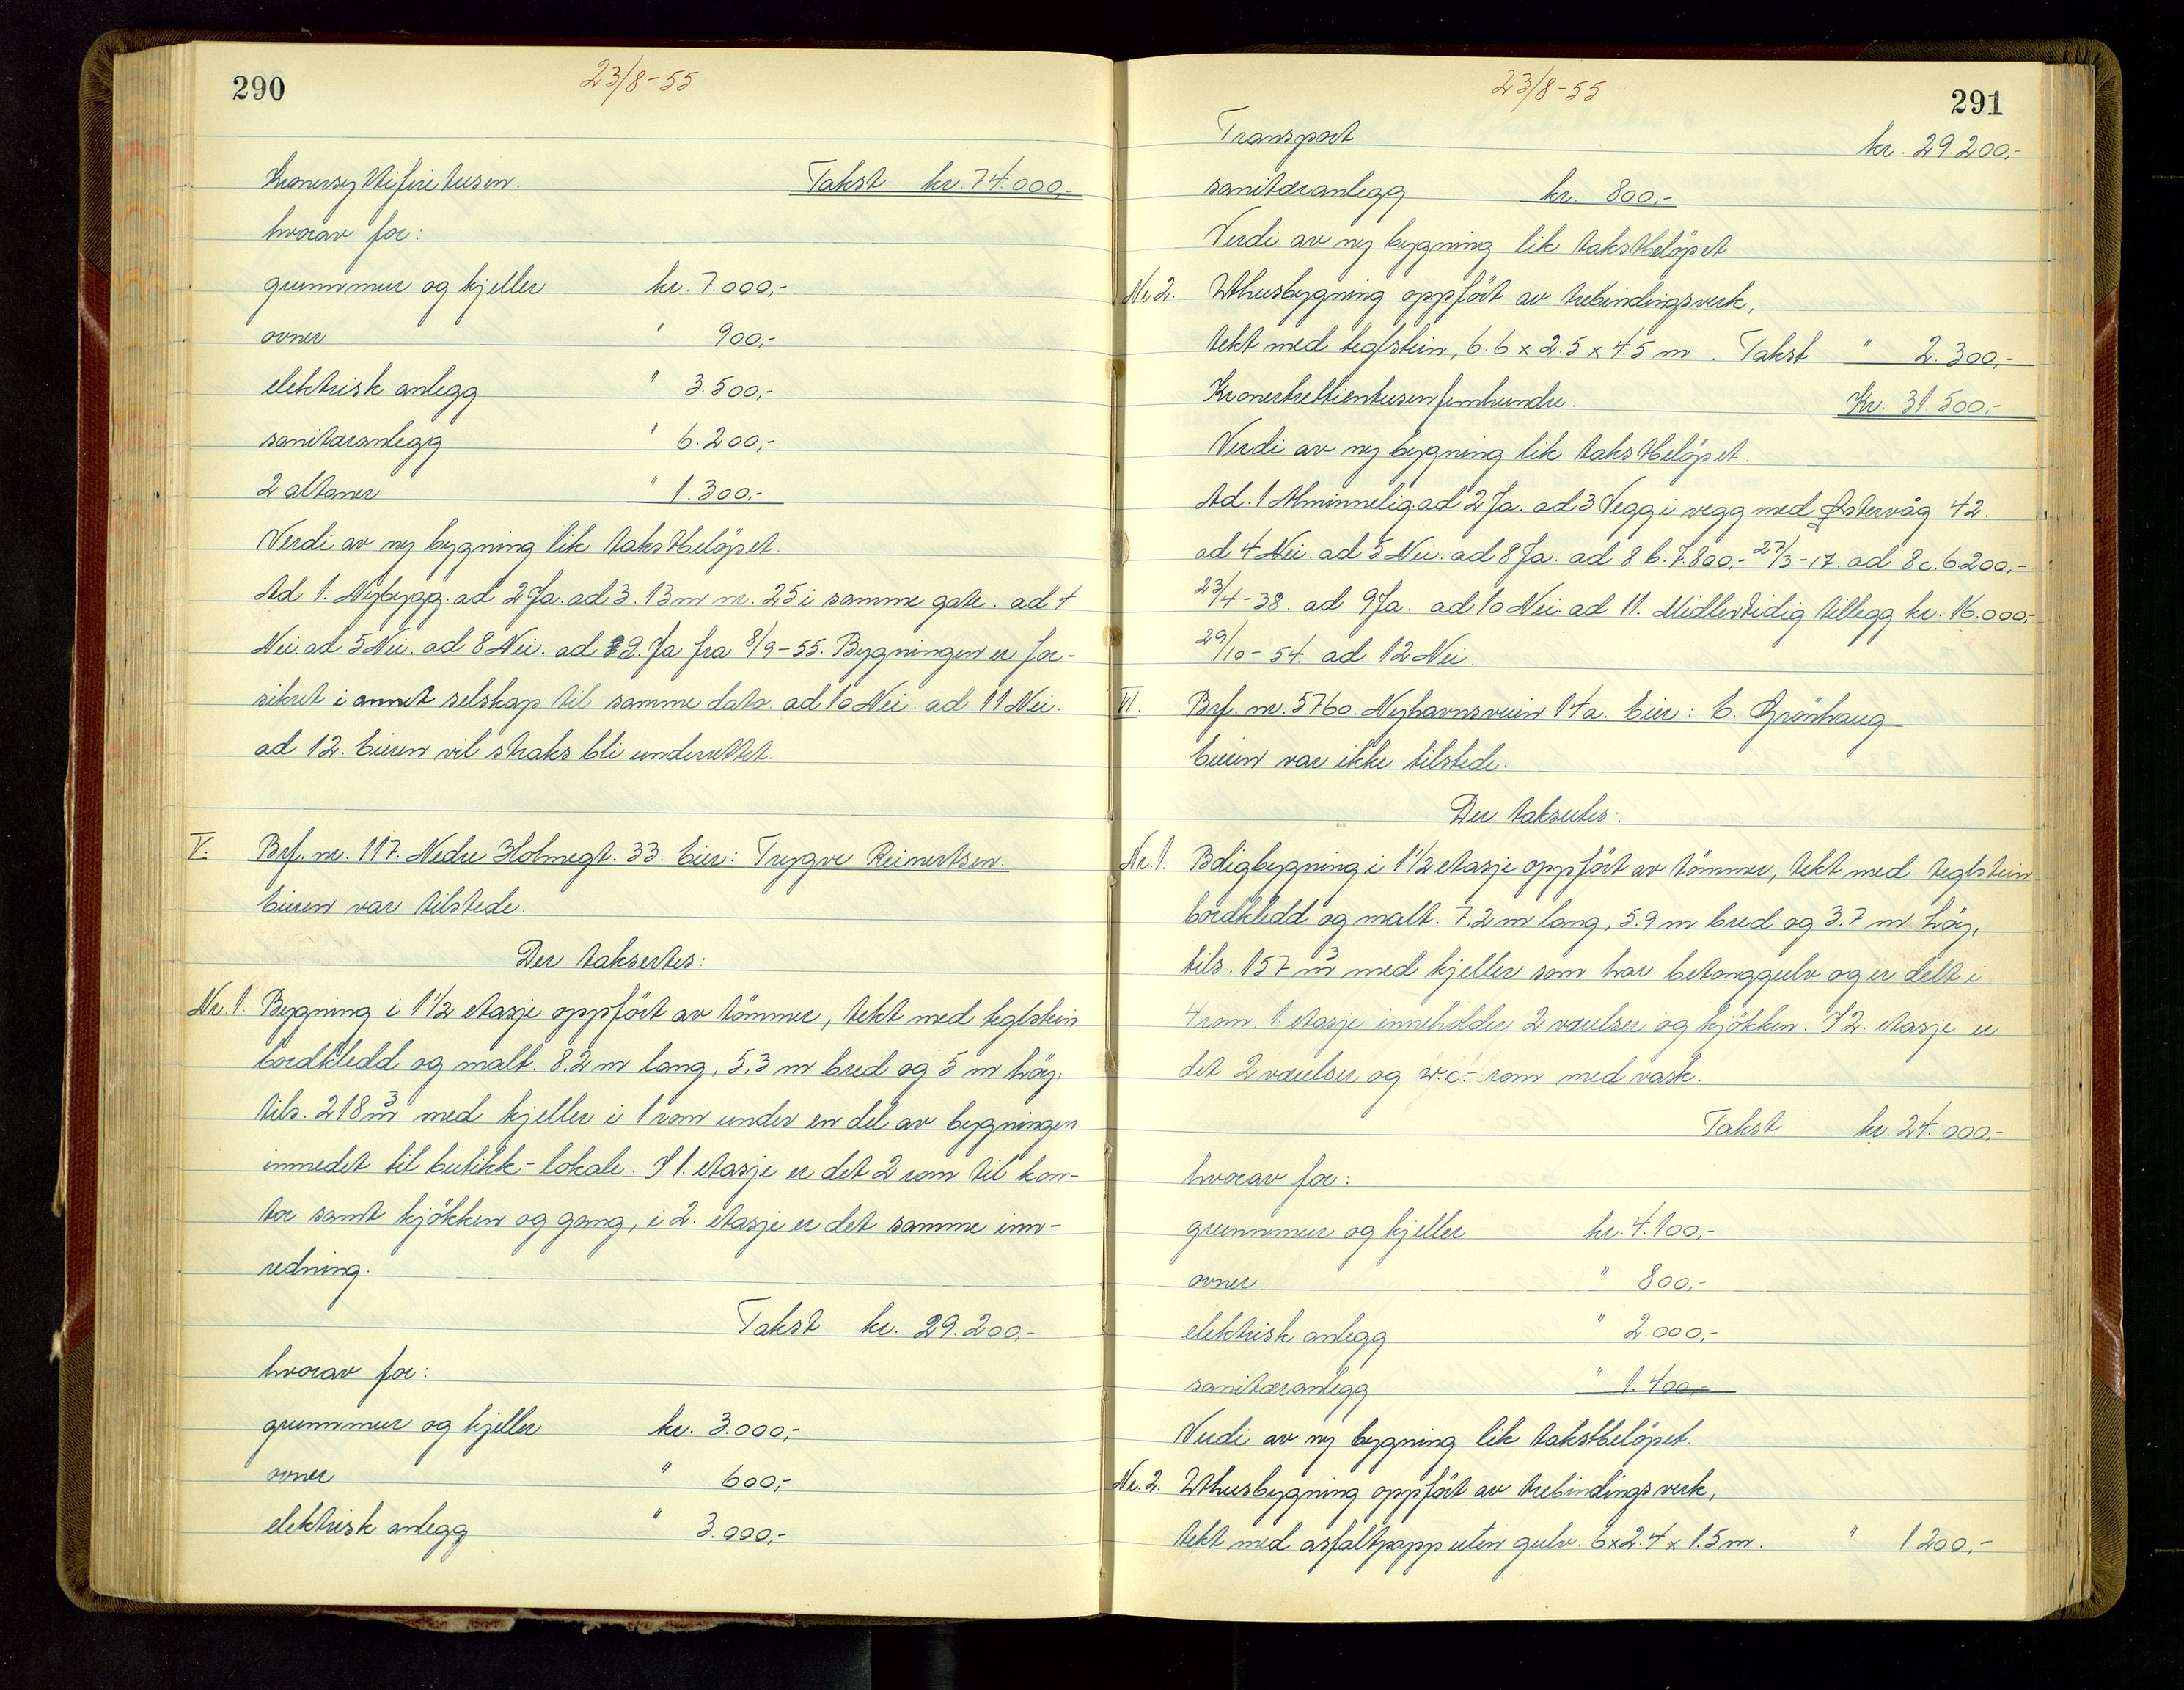 290
23/8-55
Kronersyttifiretusen. Takst kr. 74.000,-
hvorav for:
grunnmur og kjeller kr. 7.000,-
ovner " 900,-
elektrisk anlegg " 3.500,-
sanitæranlegg " 6.200,-
2 altaner " 1.300,-
Verdi av ny bygning lik takstbelöpet.
Ad 1. Nybygg. ad 2 Ja. ad 3. 13 m nr. 25 i samme gate. ad 4
Nei. ad 5 Nei. ad 8 Nei. ad 9. Ja fra 8/9-55. Bygningen er for-
sikret i annet selskap til samme dato. ad 10 Nei. ad 11 Nei.
ad 12. Eieren vil straks bli underrettet.
V. Brf. nr. 117. Nedre Holmegt. 33. Eier: Trygve Reinertsen.
Eieren var tilstede.
Der taksertes:
Nr. 1. Bygning i 1 1/2 etasje oppfört av tömmer, tekt med teglstein
bordkledd og malt. 8.2 m lang, 5.3 m bred og 5 m höy,
tils. 218 m3 med kjeller i 1 rom under en del av bygningen
innredet til butikk-lokale. I 1. etasje er det 2 rom til kon-
tor samt kjökken og gang, i 2. etasje er det samme inn-
redning.
Takst kr. 29.200,-
hvorav for:
grunnmur og kjeller kr. 3.000,-
ovner " 600,-
elektrisk anlegg " 3.000,-
291
23/8-55
Transport kr. 29.200,-
sanitæranlegg kr. 800,-
Verdi av ny bygning lik takstbelöpet
Nr. 2. Uthusbygning oppfört av trebindingsverk,
tekt med teglstein, 6.6 x 2.5 x 4.5 m. Takst " 2.300,-
Kronertrettientusenfemhundre. Kr. 31.500,-
Verdi av ny bygning lik takstbelöpet.
Ad. 1 Alminnelig. ad 2 Ja. ad 3 Vegg i vegg med Østervåg 42.
ad 4 Nei. ad 5 Nei. ad 8 Ja. ad 8 b. 7.800,- 27/3-17. ad 8c. 6200,-
23/4-38. ad 9 Ja. ad 10 Nei. ad 11. Midlertidig tillegg kr. 16.000,-
29/10-54. ad 12 Nei.
VI. Brf. nr. 5760. Nyhavnsveien 14a. Eier: E. Grönhaug
Eieren var ikke tilstede.
Der taksertes:
Nr. 1. Boligbygning i 1 1/2 etasje oppfört av tömmer, tekt med teglstein
bordkledd og malt. 7.2 m lang, 5.9 m bred og 3.7 m höy,
tils. 157 m3 med kjeller som har betonggulv og er delt i
4 rom. 1. etasje inneholder 2 værelser og kjökken. I 2. etasje er
det 2 værelser og w.c.-rom med vask.
Takst kr. 24.000,-
hvorav for:
grunnmur og kjeller kr. 4.100,-
ovner " 800,-
elektrisk anlegg " 2.000,-
sanitæranlegg " 1.400,-
Verdi av ny bygning lik takstbelöpet.
Nr. 2. Uthusbygning oppfört av trebindingsverk,
tekt med asfaltpapp uten gulv. 6x2.4 x 1.5 m. " 1.200,-